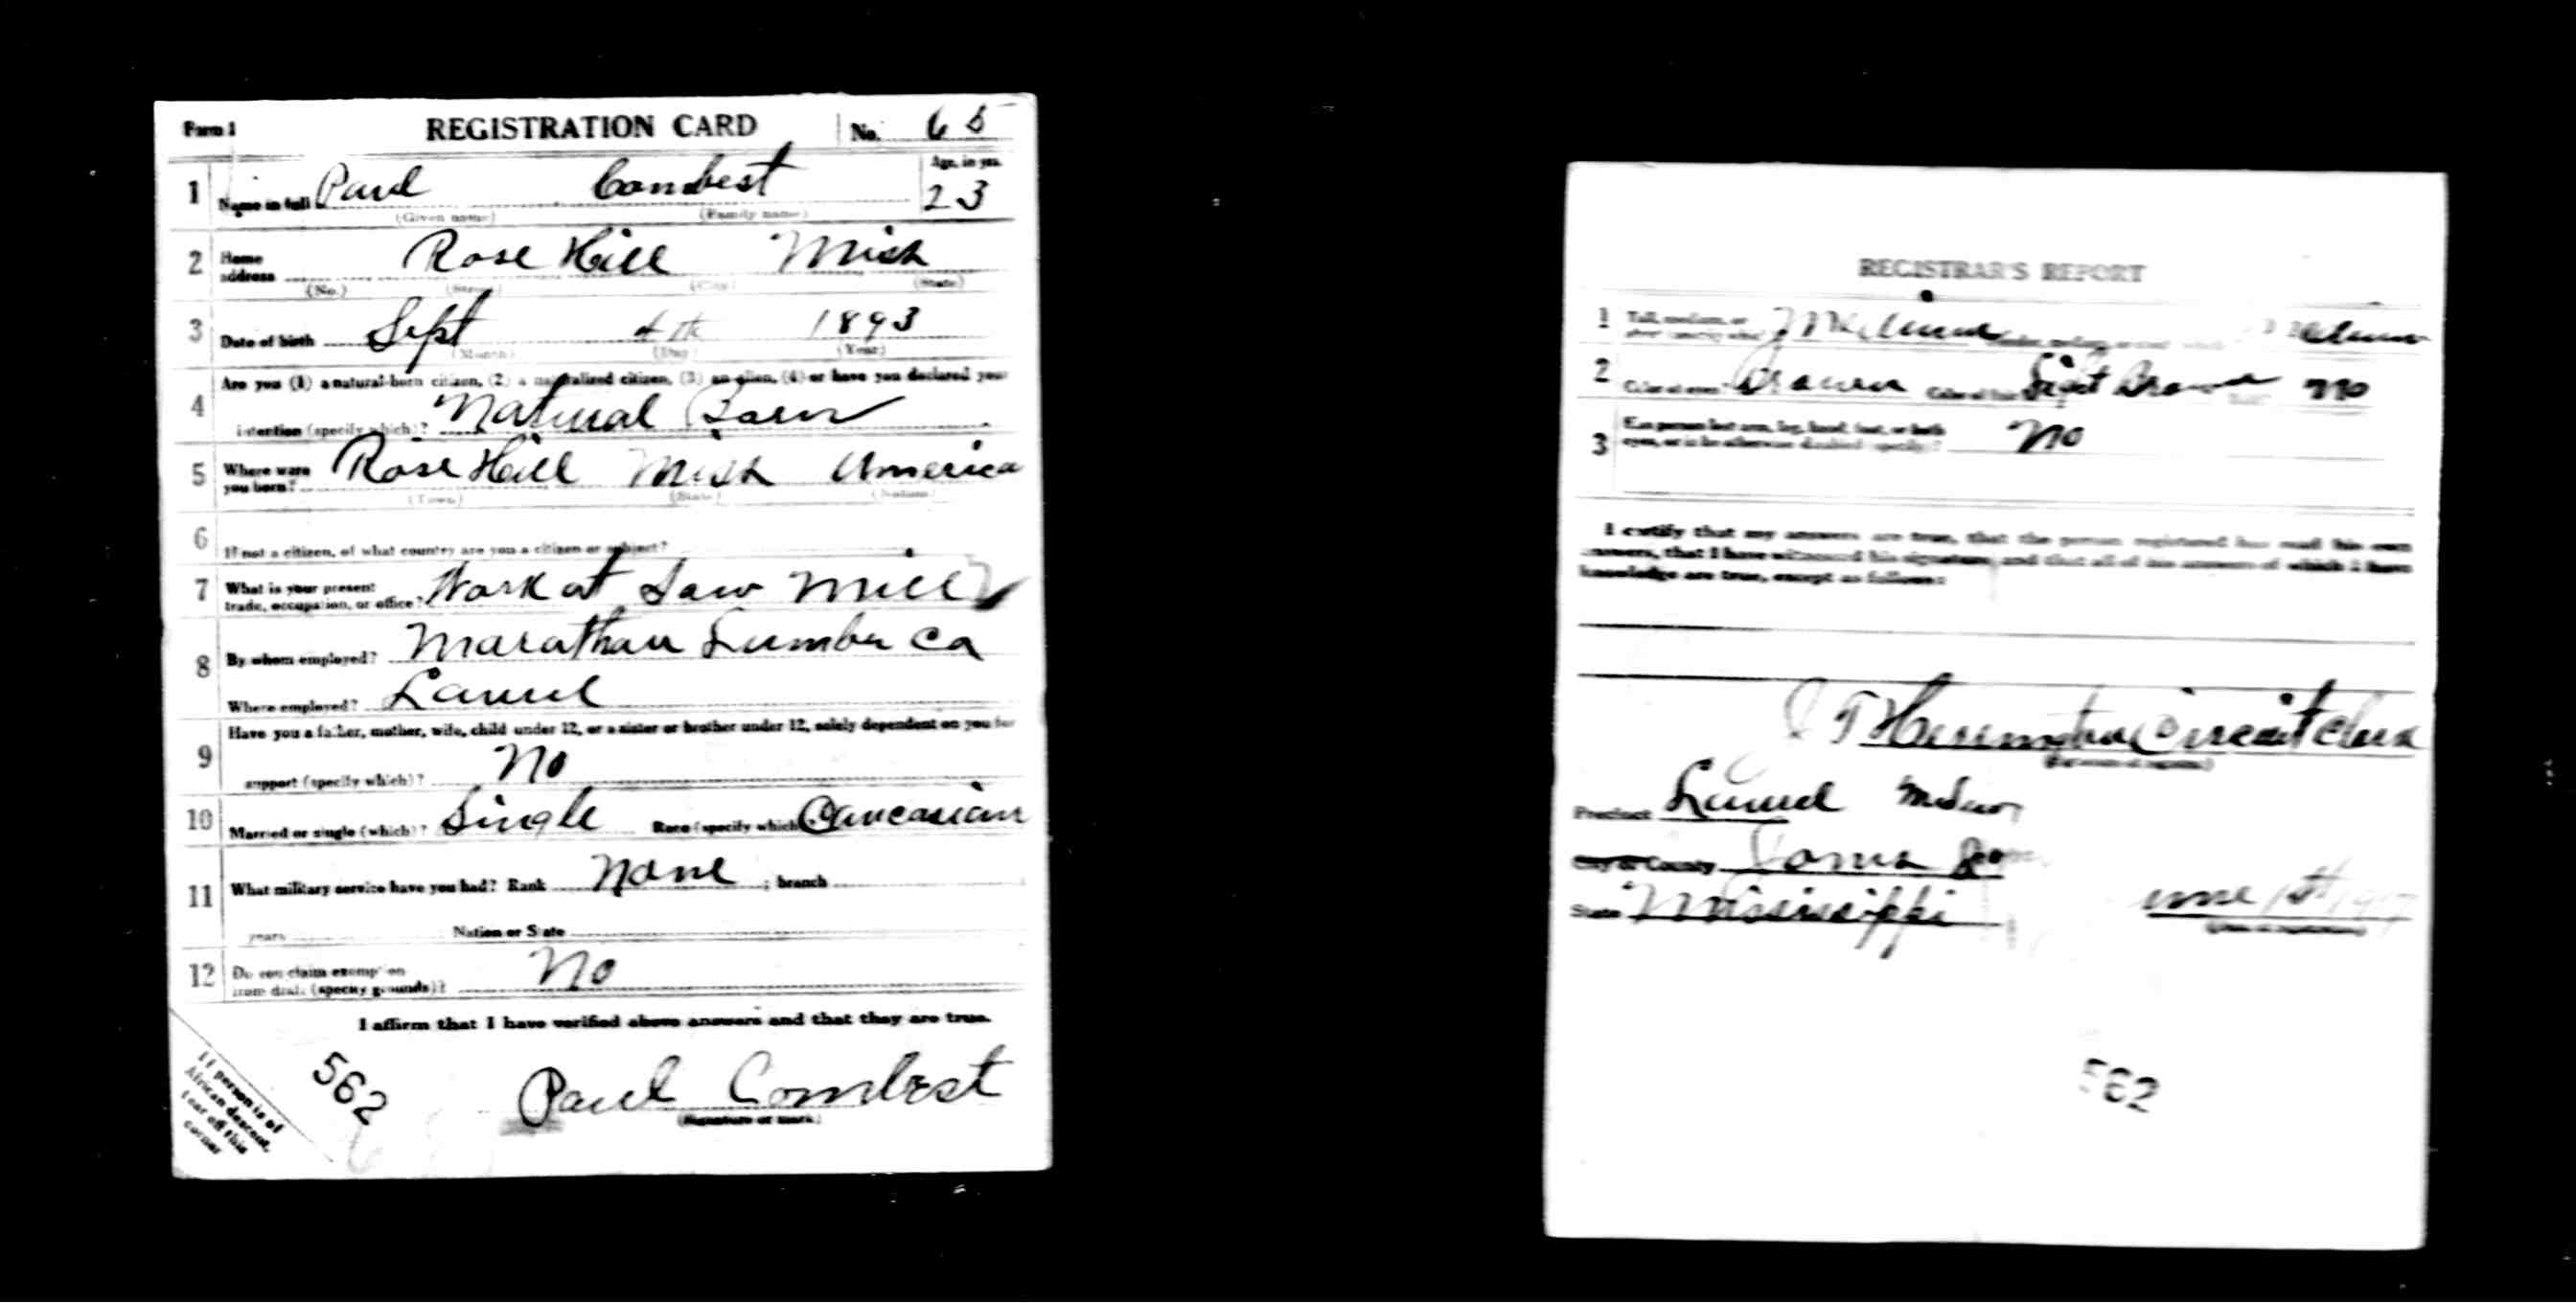 Form 1 REGISTRATION CARD No. 65
1 Name in full Paul Combest Age, in yrs. 23
(Given name) (Family name)
2 Home address Rose Hill Miss
(No.) (Street) (City) (State)
3 Date of birth Sept 4th 1893
(Month) (Day) (Year)
Are you (1) a natural-born citizen, (2) a naturalized citizen, (3) an alien, (4) or have you declared your
4 intention (specify which)? Natural Born
5 Where were you born? Rose Hill Miss America
(Town) (State) (Nation)
6 If not a citizen, of what country are you a citizen or subject?
7 What is your present trade, occupation, or office? Work at Saw Mill
8 By whom employed? Marathon Lumber Co
Where employed? Laurel
Have you a father, mother, wife, child under 12, or a sister or brother under 12, solely dependent on you for
9 support (specify which)? No
10 Married or single (which)? Single Race (specify which)? Caucasian
11 What military service have you had? Rank None ; branch
years Nation or State
12 Do you claim exemption from draft (specify grounds)? No
I affirm that I have verified above answers and that they are true.
Paul Combest
(Signature or mark)
If person is of
African descent,
tear off this
corner
562
REGISTRAR'S REPORT
1 Tall, medium, or short (specify which)? Medium
2 Color of eyes? Brown Color of hair? Light Brown Bald? No
3 Has person lost arm, leg, hand, foot, or both eyes, or is he otherwise disabled (specify)? No
I certify that my answers are true, that the person registered has read his own
answers, that I have witnessed his signature, and that all of his answers of which I have
knowledge are true, except as follows:
Circuit Clerk
(Signature of registrar)
Precinct Laurel
City or County Jones
State Mississippi
(Date of registration)
562